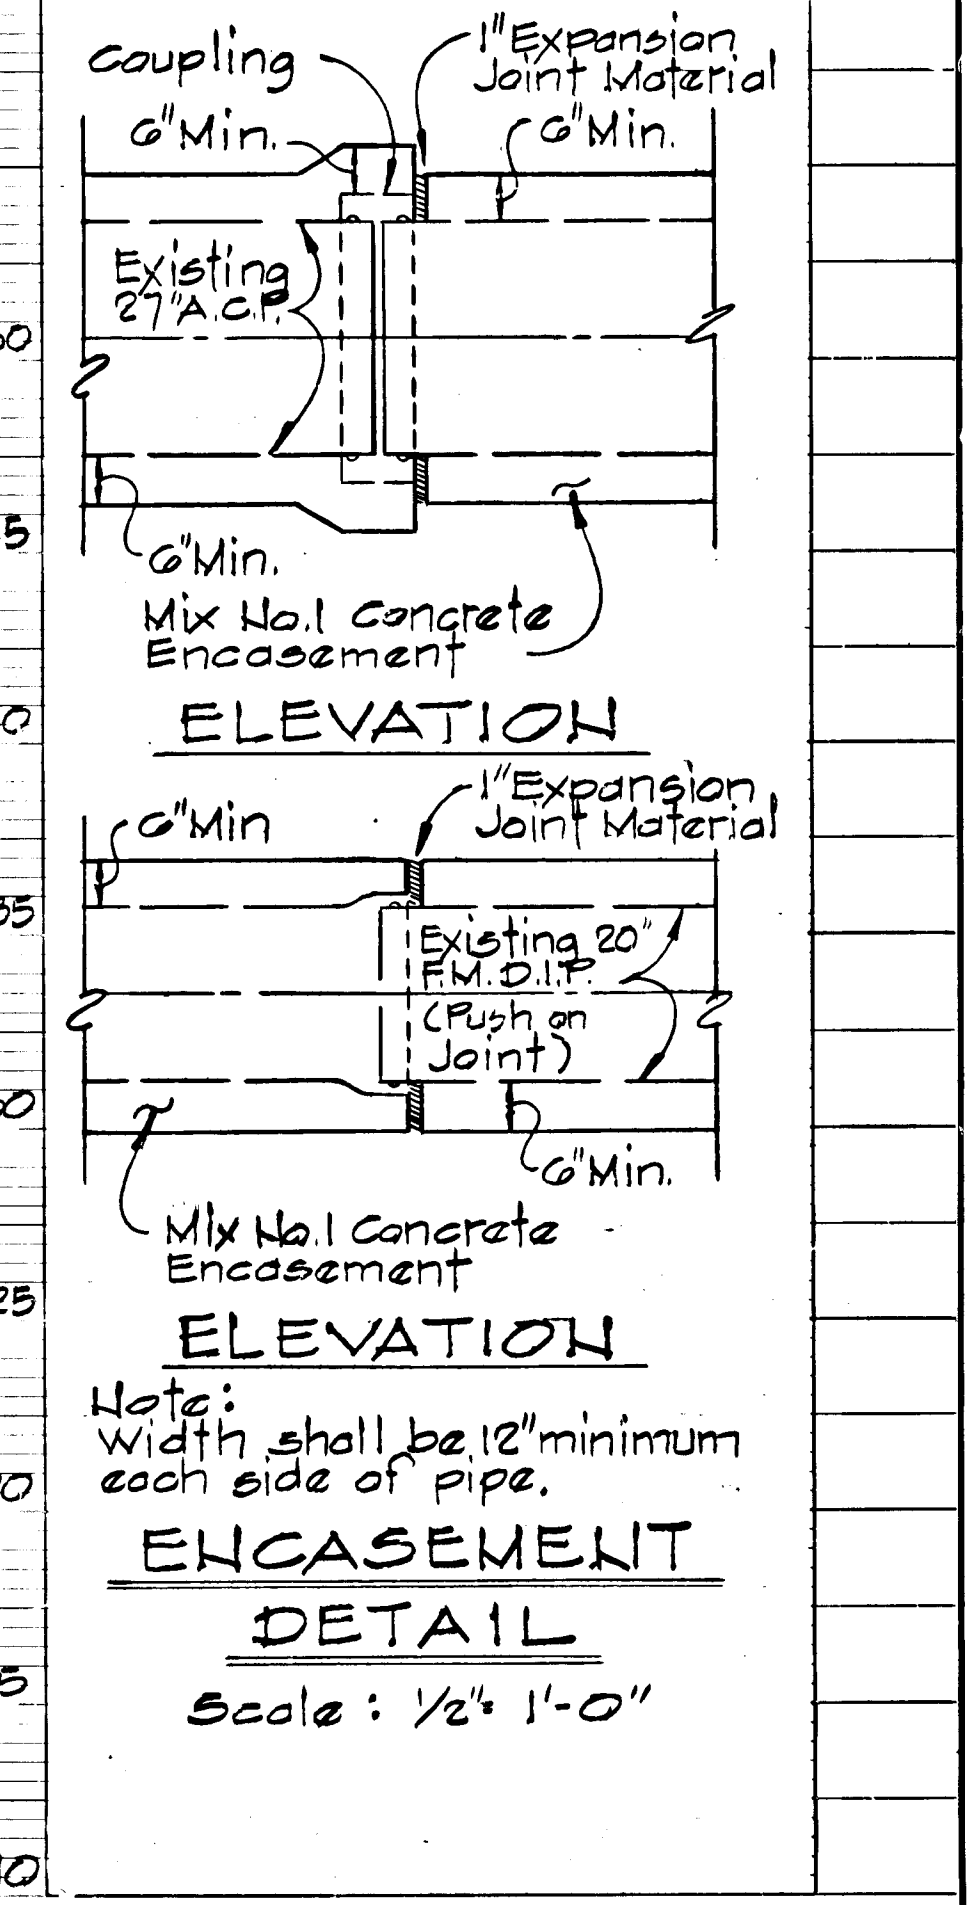 Coupling
1" Expansion
Joint Material
6" Min.
6" Min.
Existing
27" A.C.P.
6" Min.
Mix No. 1 Concrete
Encasement
ELEVATION
1" Expansion
Joint Material
6" Min
Existing 20"
F.M. D.I.P.
(Push on
Joint)
6" Min.
Mix No. 1 Concrete
Encasement
ELEVATION
Note:
Width shall be 12" minimum
each side of pipe.
ENCASEMENT
DETAIL
Scale: 1/2" = 1'-0"